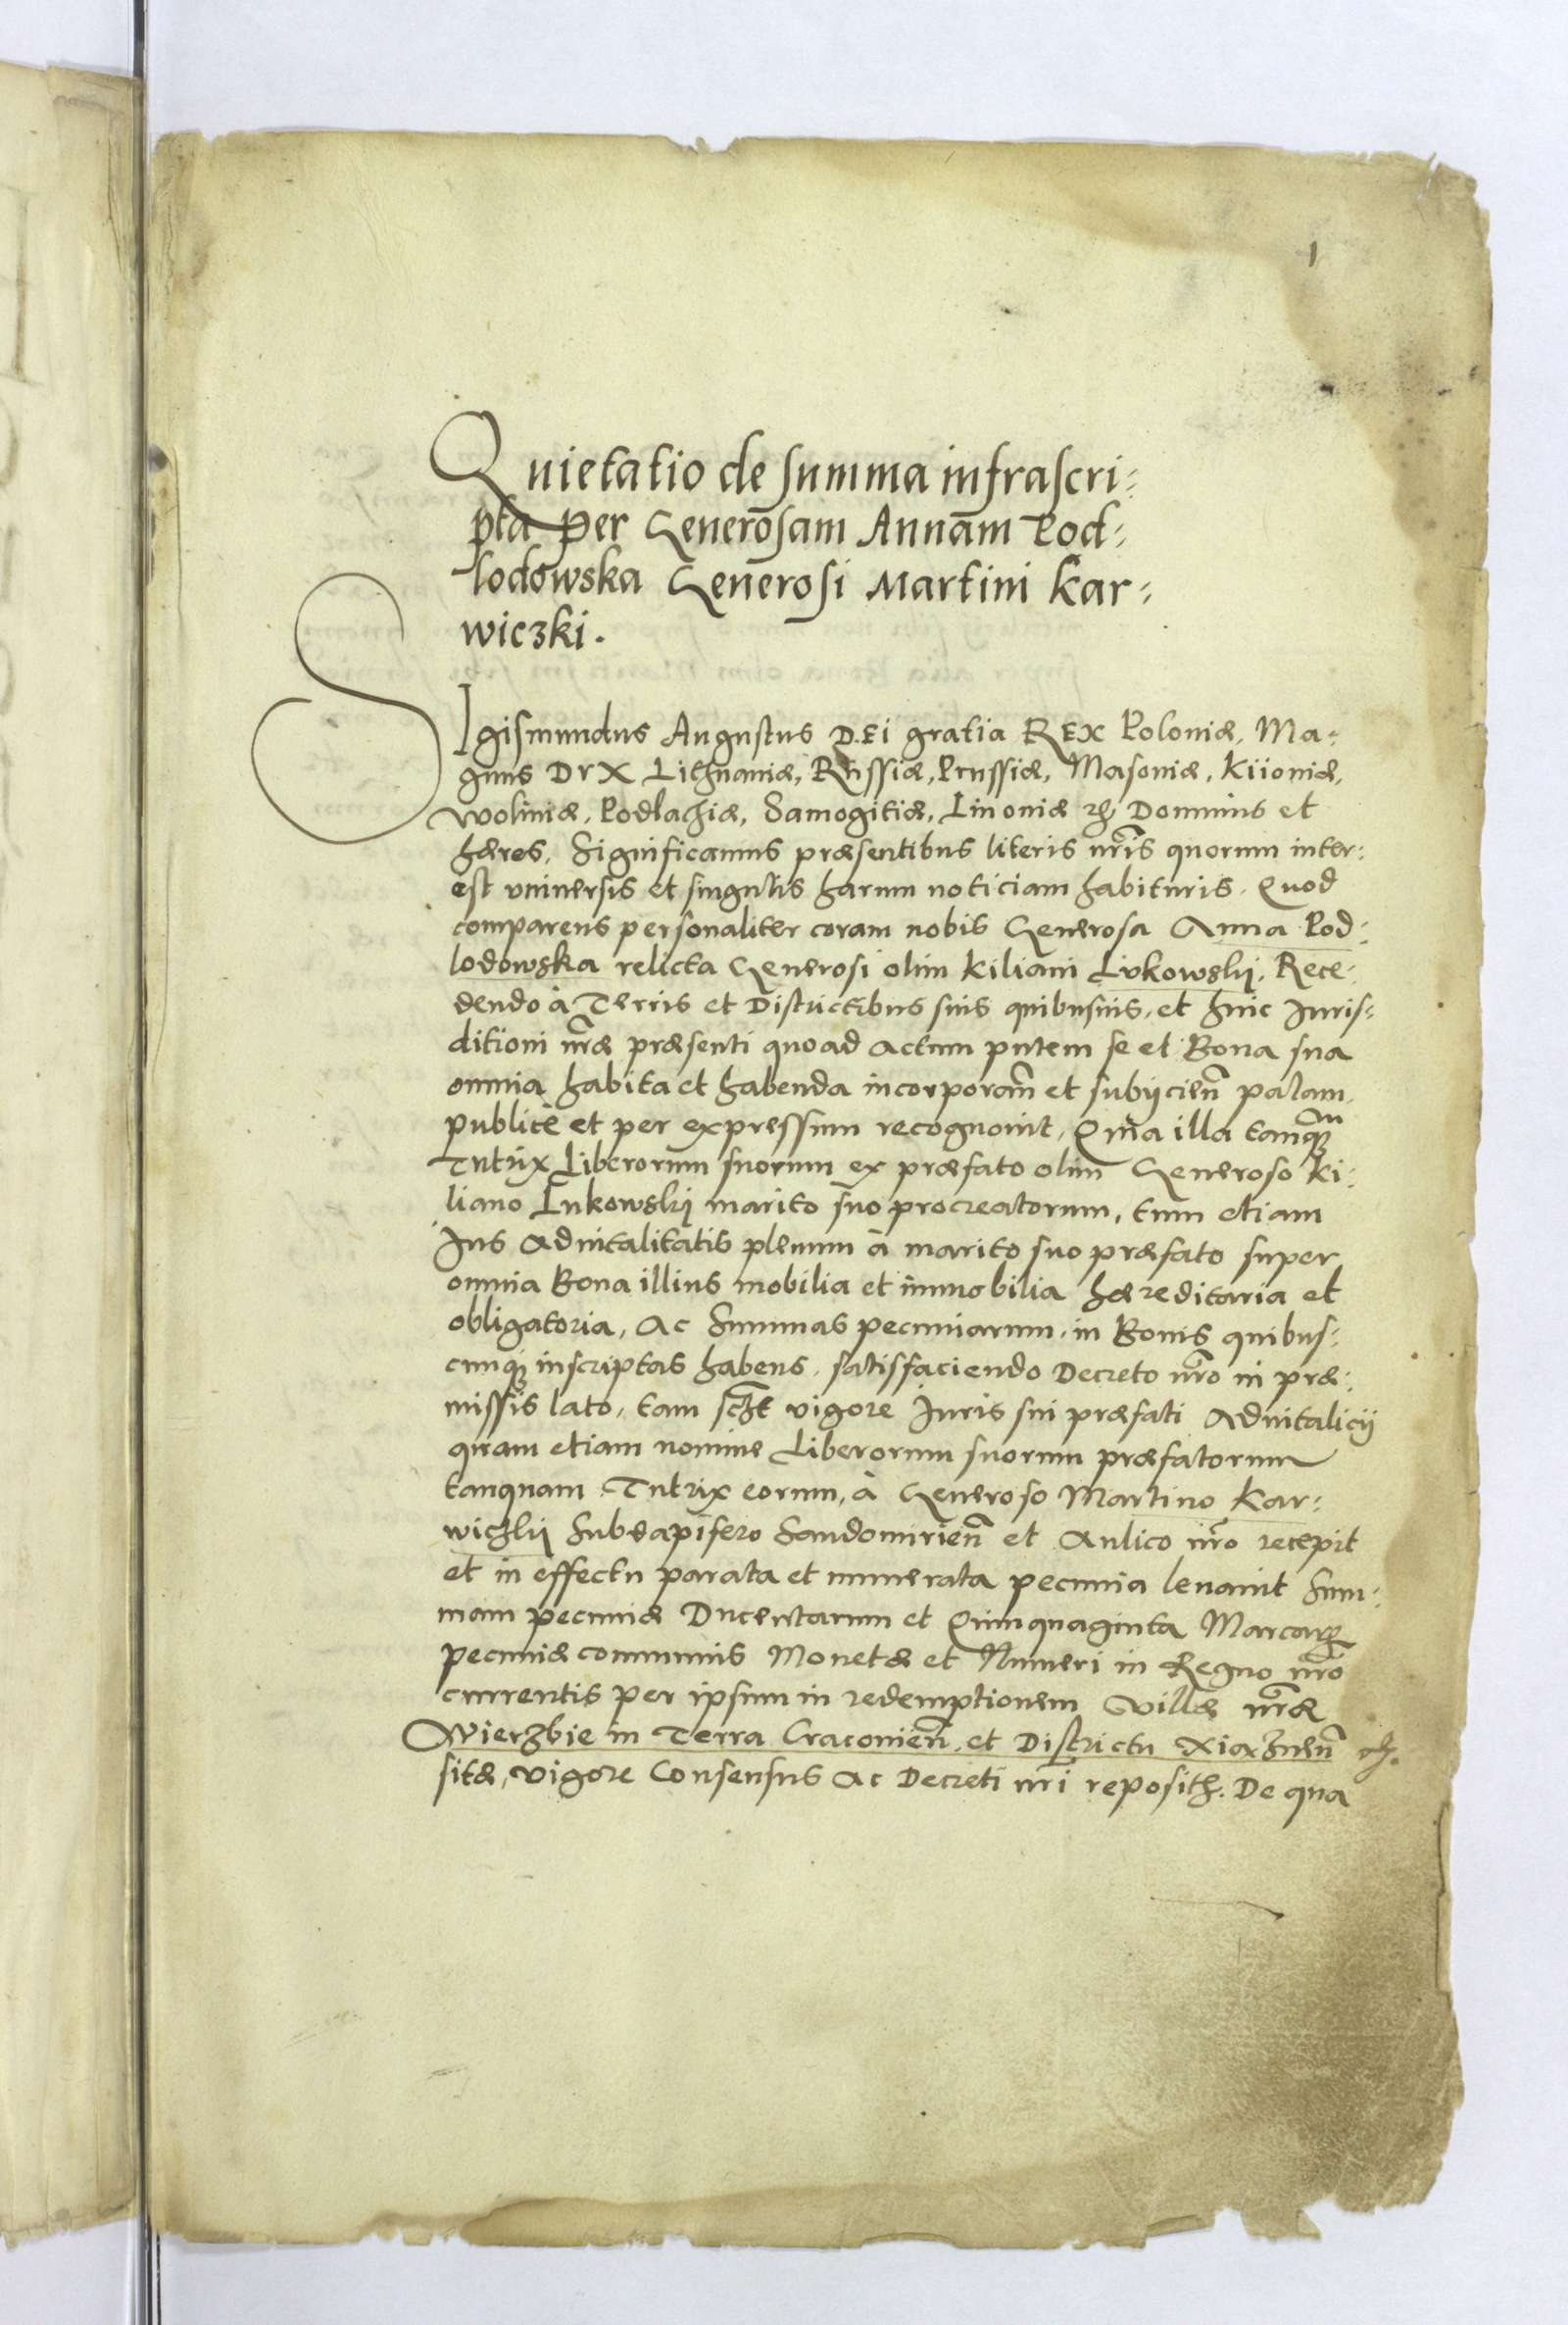 1
Quietatio de summa infrascri:
pta per Generosam Annam Pod:
lodowska Generosi Martini Kar:
wiczki.
SIgismundus Augustus DEI gratia REX Poloniæ, Ma:
gnus DVX Lithuaniæ, Russiæ, Prussiæ, Masouiæ, Kiiouiæ,
Woliniæ, Podlachiæ, Samogitiæ, Liuoniæ etc Dominus et
hæres. Significamus præsentibus literis nr̃is quorum inter:
est vniuersis et singulis harum noticiam habituris. Quod
comparens personaliter coram nobis Generosa Anna Pod:
lodowska relicta Generosi olim Kiliani Lukowskij. Rece:
dendo à Terris et Districtibus suis quibusuis, et huic Juris:
ditioni nr̃æ præsenti quoad actum pñtem se et Bona sua
omnia habita et habenda incorporañ et subijcieñ palam
publicè et per expressum recognouit, Quia illa tanq̃
Tutrix Liberorum suorum ex præfato olim Generoso Ki:
liano Lukowskij marito suo procreatorum, tum etiam
Jus aduitalitatis plenum à marito suo præfato super
omnia Bona illius mobilia et immobilia hæreditaria et
obligatoria, ac summas pecuniarum in Bonis quibus:
cunq; inscriptas habens, satisfaciendo Decreto nr̃o in præ:
missis lato, tam sc̃ʒt vigore Juris sui præfati Aduitalicij
quam etiam nomine Liberorum suorum præfatorum
tanquam Tutrix eorum, à Generoso Martino Kar:
wiczkij Subdapifero Sandomirieñ et Aulico nr̃o recepit
et in effectu parata et numerata pecunia leuauit Sum:
mam pecuniæ Ducentarum et Quinquaginta Marcarꝝ
pecuniæ communis Monetæ et Numeri in Regno nr̃o
currentis per ipsum in redemptionem Villæ nr̃æ
Wierzbie in Terra Cracouieñ. et Districtu Xiazneñ
sitæ, vigore Consensus ac Decreti nr̃i reposith. De qua